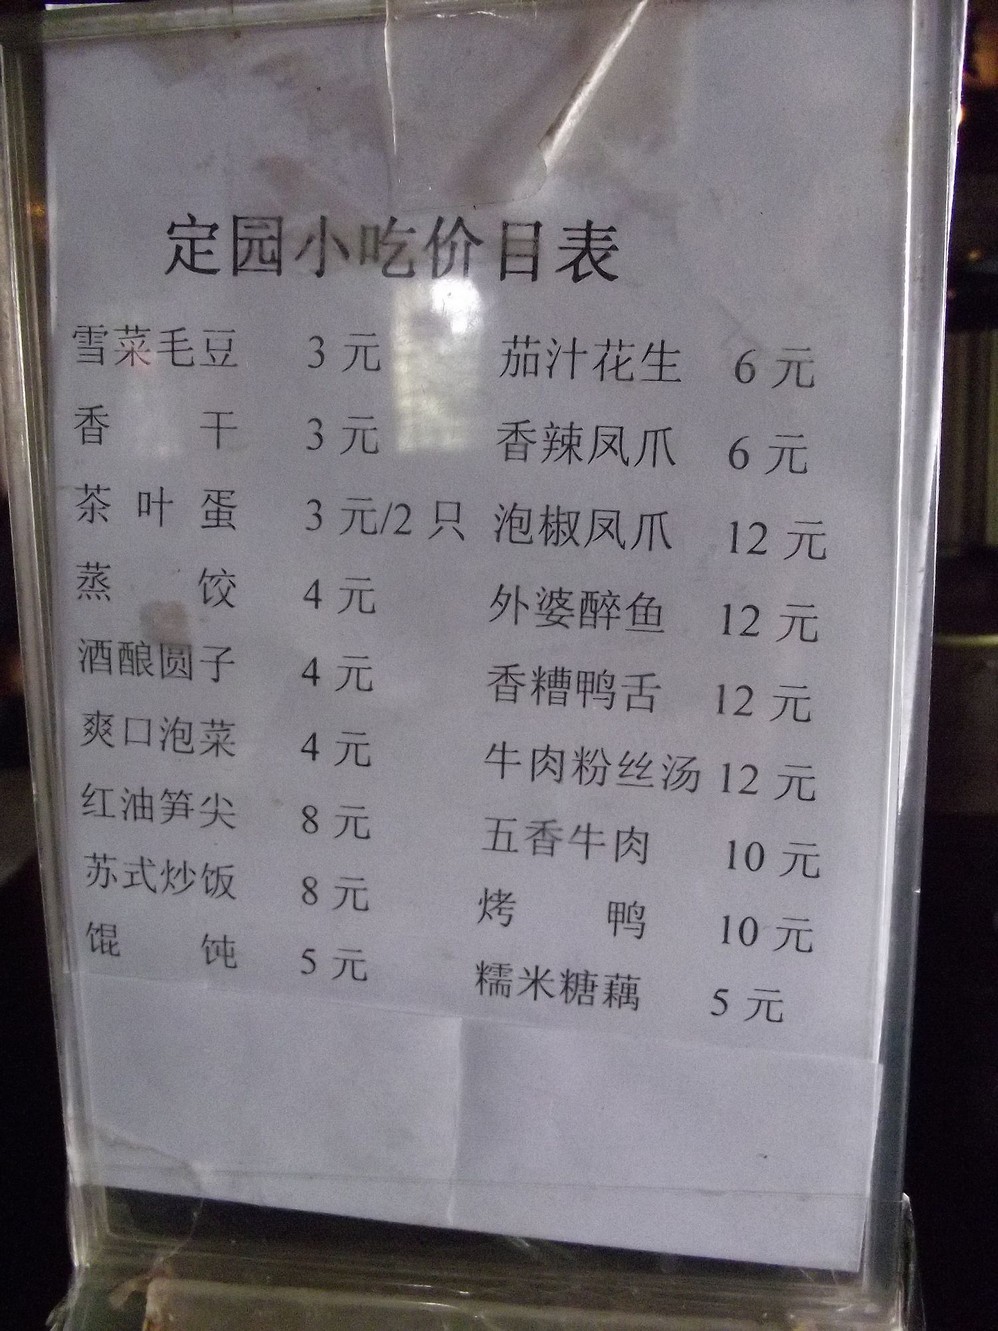 定园小吃价目表
雪菜毛豆 3 元 茄汁花生 6 元
香 干 3 元 香辣凤爪 6 元
茶 叶 蛋 3 元/2 只 泡椒凤爪 12 元
蒸 饺 4 元 外婆醉鱼 12 元
酒酿圆子 4 元 香糟鸭舌 12 元
爽口泡菜 4 元 牛肉粉丝汤 12 元
红油笋尖 8 元 五香牛肉 10 元
苏式炒饭 8 元 烤 鸭 10 元
馄 饨 5 元 糯米糖藕 5 元